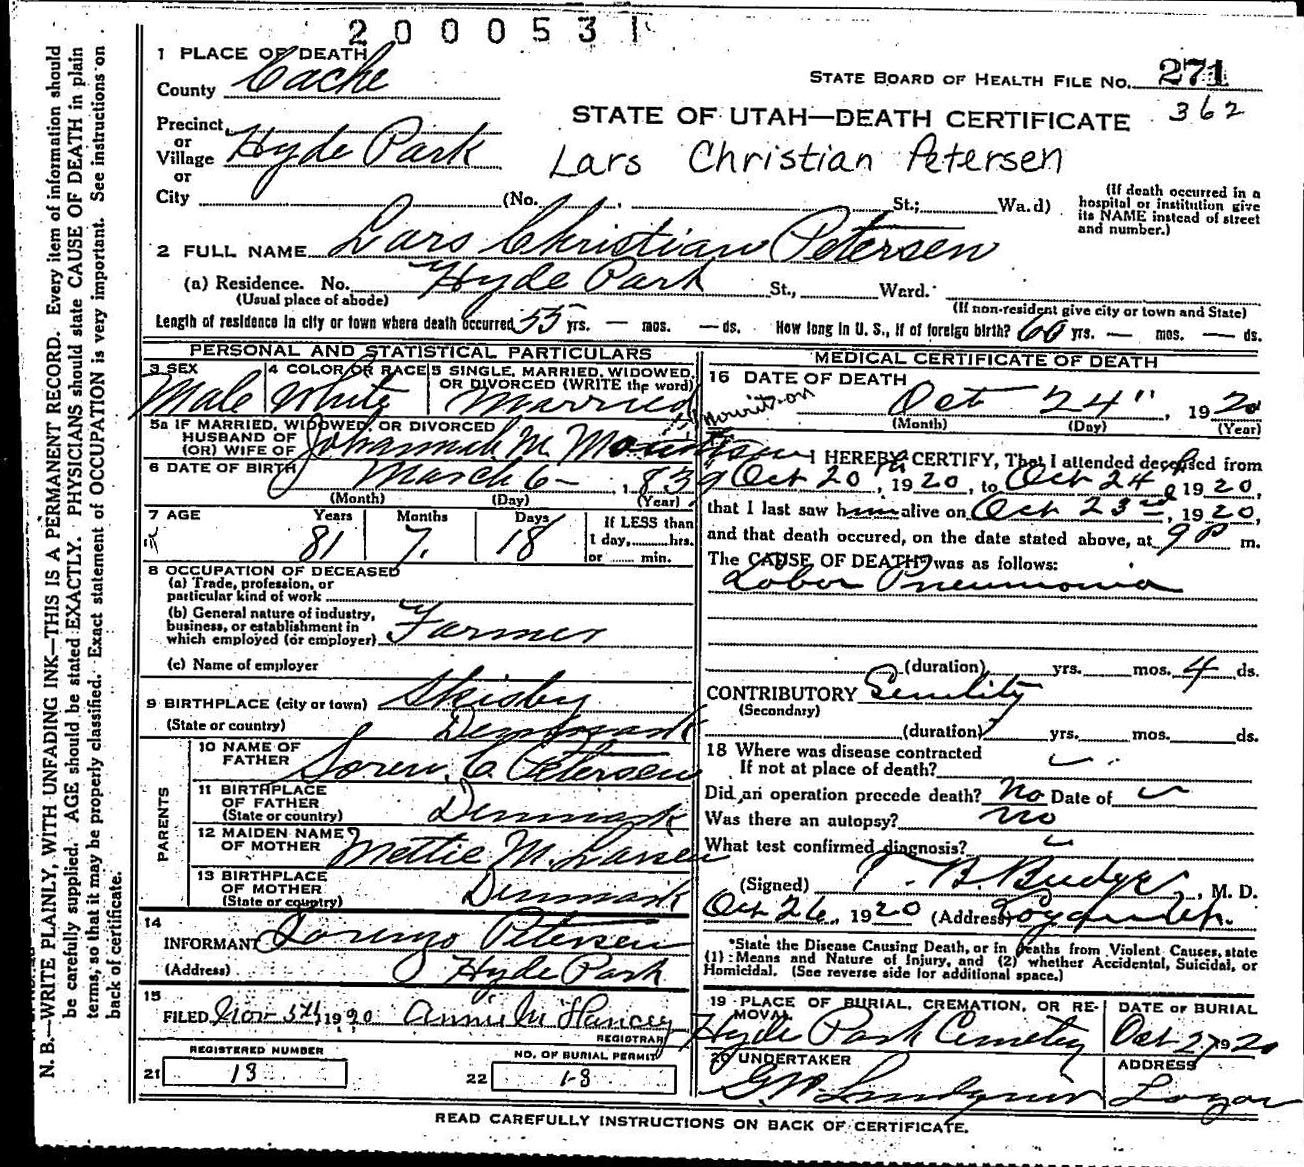 2000531
1 PLACE OF DEATH
County Cache
STATE BOARD OF HEALTH FILE NO. 271
362
STATE OF UTAH—DEATH CERTIFICATE
Lars Christian Petersen
Precinct
or
Village Hyde Park
or
City (No. St.; Wa.d)
(If death occurred in a
hospital or institution give
its NAME instead of street
and number.)
2 FULL NAME Lars Christian Petersen
(a) Residence. No. Hyde Park St., Ward.
(Usual place of abode)
(If non-resident give city or town and State)
Length of residence in city or town where death occurred 55 yrs. — mos. — ds. How long in U. S., if of foreign birth? 60 yrs. — mos. — ds.
PERSONAL AND STATISTICAL PARTICULARS
3 SEX
Male
4 COLOR OR RACE
White
5 SINGLE, MARRIED, WIDOWED,
OR DIVORCED (WRITE the word)
Married
5a IF MARRIED, WIDOWED, OR DIVORCED
HUSBAND OF
(OR) WIFE OF Johannah M.
6 DATE OF BIRTH March 6 — , 1839
(Month) (Day) (Year)
7 AGE Years Months Days
81 7 18
If LESS than
1 day, hrs.
or min.
8 OCCUPATION OF DECEASED
(a) Trade, profession, or
particular kind of work
(b) General nature of industry,
business, or establishment in
which employed (or employer) Farmer
(c) Name of employer
9 BIRTHPLACE (city or town) Skisby
(State or country) Denmark
PARENTS
10 NAME OF
FATHER Soren C. Petersen
11 BIRTHPLACE
OF FATHER
(State or country) Denmark
12 MAIDEN NAME
OF MOTHER Mettie M. Larsen
13 BIRTHPLACE
OF MOTHER
(State or country) Denmark
14
INFORMANT Lorenzo Petersen
(Address) Hyde Park
15
FILED Nov 5th, 1920 Annie M Hancey
REGISTRAR
REGISTERED NUMBER
21 13
NO. OF BURIAL PERMIT
22 1-8
MEDICAL CERTIFICATE OF DEATH
16 DATE OF DEATH
Oct 24", 1920
(Month) (Day) (Year)
I HEREBY CERTIFY, That I attended deceased from
Oct 20th, 1920, to Oct 24, 1920,
that I last saw him alive on Oct 23rd, 1920,
and that death occured, on the date stated above, at 9 P m.
The CAUSE OF DEATH* was as follows:
Lobar Pneumonia
(duration) yrs. mos. 4 ds.
CONTRIBUTORY Senility
(Secondary)
(duration) yrs. mos. ds.
18 Where was disease contracted
If not at place of death?
Did an operation precede death? No Date of
Was there an autopsy? No
What test confirmed diagnosis?
(Signed) T. B. Budge, M. D.
Oct 26, 1920 (Address) Logan Utah.
*State the Disease Causing Death, or in deaths from Violent Causes, state
(1) Means and Nature of Injury, and (2) whether Accidental, Suicidal, or
Homicidal. (See reverse side for additional space.)
19 PLACE OF BURIAL, CREMATION, OR RE-
MOVAL
Hyde Park Cemetery
DATE OF BURIAL
Oct 27 1920
20 UNDERTAKER
ADDRESS
Logan
READ CAREFULLY INSTRUCTIONS ON BACK OF CERTIFICATE.
N. B.—WRITE PLAINLY, WITH UNFADING INK—THIS IS A PERMANENT RECORD. Every item of information should
be carefully supplied. AGE should be stated EXACTLY. PHYSICIANS should state CAUSE OF DEATH in plain
terms, so that it may be properly classified. Exact statement of OCCUPATION is very important. See instructions on
back of certificate.